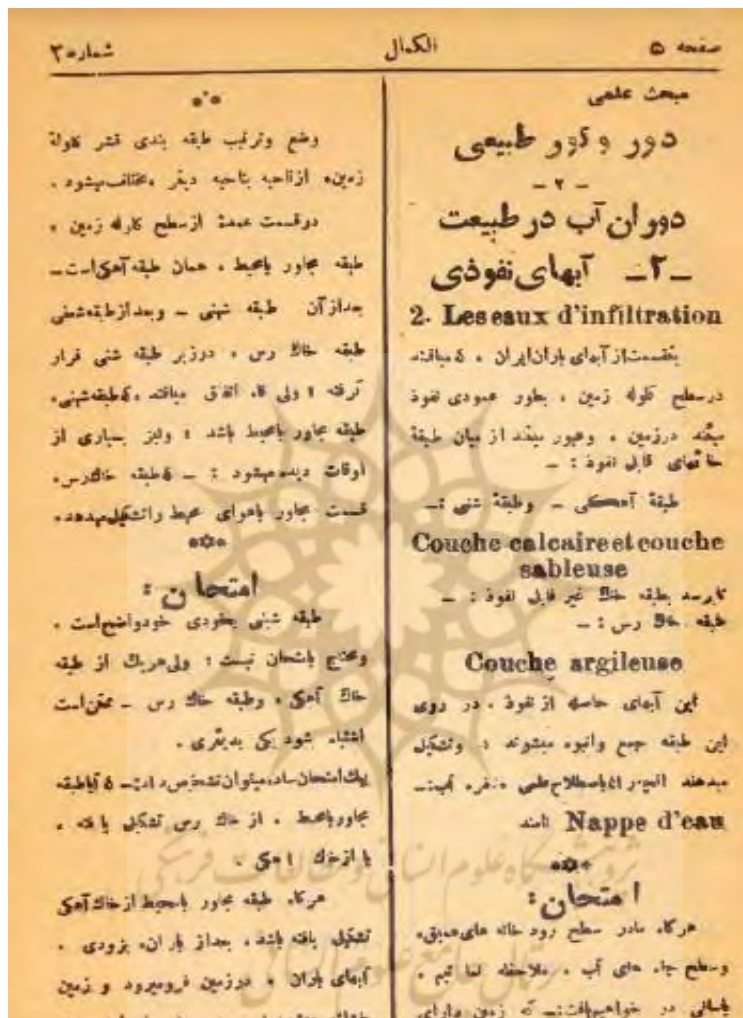 صفحه ۵
الکمال
شماره ۳
مبحث علمی
دور و کور طبیعی
ـ ۲ ـ
دوران آب در طبیعت
ـ۲ـ آبهای نفوذی
2. Les eaux d'infiltration
یکقسمت از آبهای باران ایران ، که میافتند
در سطح کلوله زمین ، بطور عمودی نفوذ
میکند در زمین ، و عبور میکند از میان طبقهٔ
خاکهای قابل نفوذ : ـ
طبقهٔ آهکی ـ و طبقهٔ شنی :ـ
Couche calcaire et couche
sableuse
تا برسد بطبقه خاک غیر قابل نفوذ : ـ
طبقه خاک رس : ـ
Couche argileuse
این آبهای حاصله از نفوذ ، در روی
این طبقه جمع و انبوه میشوند ؛ و تشکیل
میدهند باصطلاح علمی سفره آب:ـ
Nappe d'eau نامند
امتحان :
هرگاه مادر سطح رود خانه های عمیق،
و سطح چاه های آب ، ملاحظه نمائیم ،
بآسانی در خواهیم یافت:ـ که زمین دارای
وضع و ترتیب طبقه بندی قشر کلولهٔ
زمین، از ناحیه بناحیه دیگر ،مختلف میشود .
در قسمت عمدهٔ از سطح کلوله زمین ،
طبقه مجاور بامحیط ، همان طبقه آهکی است ـ
بعد از آن طبقه شنی ـ و بعد از طبقه شنی
طبقه خاک رس ، در زیر طبقه شنی قرار
گرفته ؛ ولی گاه اتفاق میافتد ،که طبقه شنی،
طبقه مجاور بامحیط باشد ؛ و نیز بسیاری از
اوقات دیده میشود : ـ که طبقه خاک رس،
قسمت مجاور باهوای محیط را تشکیل میدهد.
امتحان :
طبقه شنی بخودی خود واضح است ،
و محتاج بامتحان نیست ؛ ولی هر یک از طبقه
خاک آهکی ، و طبقه خاک رس ـ ممکن است
اشتباه شود یکی بدیگری .
بیک امتحان ساده میتوان تشخیص داد:ـ که آیا طبقه
مجاور بامحیط ، از خاک رس تشکیل یافته ،
یا از خاک آهکی .
هرگاه طبقه مجاور بامحیط از خاک آهکی
تشکیل یافته باشد ، بعد از باران، بزودی ،
آبهای باران ، در زمین فرو میرود و زمین